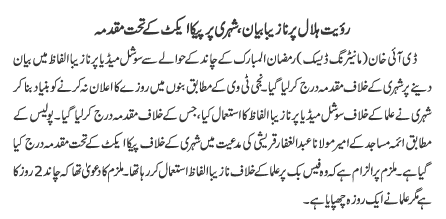 رؤیت ہلال پر نازیبا بیان، شہری پر پیکا ایکٹ کے تحت مقدمہ
ڈی آئی خان (مانیٹرنگ ڈیسک) رمضان المبارک کے چاند کے حوالے سے سوشل میڈیا پر نازیبا الفاظ میں بیان
دینے پر شہری کے خلاف مقدمہ درج کر لیا گیا۔ نجی ٹی وی کے مطابق بنوں میں روزے کا اعلان نہ کرنے کو بنیاد بنا کر
شہری نے علما کے خلاف سوشل میڈیا پر نازیبا الفاظ کا استعمال کیا، جس کے خلاف مقدمہ درج کر لیا گیا۔ پولیس کے
مطابق ائمہ مساجد کے امیر مولانا عبدالغفار قریشی کی مدعیت میں شہری کے خلاف پیکا ایکٹ کے تحت مقدمہ درج کیا
گیا ہے۔ ملزم پر الزام ہے کہ وہ فیس بک پر علما کے خلاف نازیبا الفاظ استعمال کر رہا تھا۔ ملزم کا دعویٰ تھا کہ چاند 2 روز کا
ہے مگر علما نے ایک روزہ چھپایا ہے۔